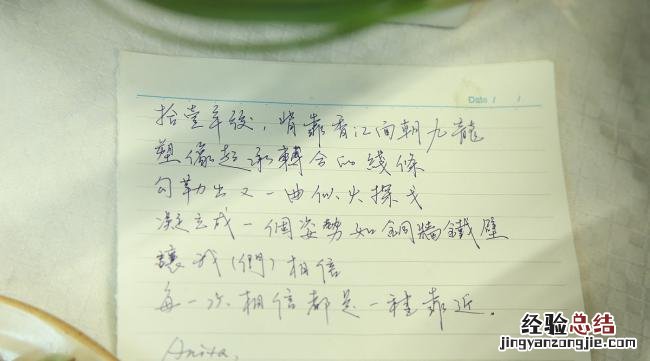 Date / /
拾壹年後，背靠香江面朝九龍
塑像起承轉合的綫條
勾勒出又一曲似火探戈
凝立成一個姿勢如銅牆鐵壁
讓我（們）相信
每一次相信都是一種靠近.
Anita.
经验总结
jingyanzongjie.com